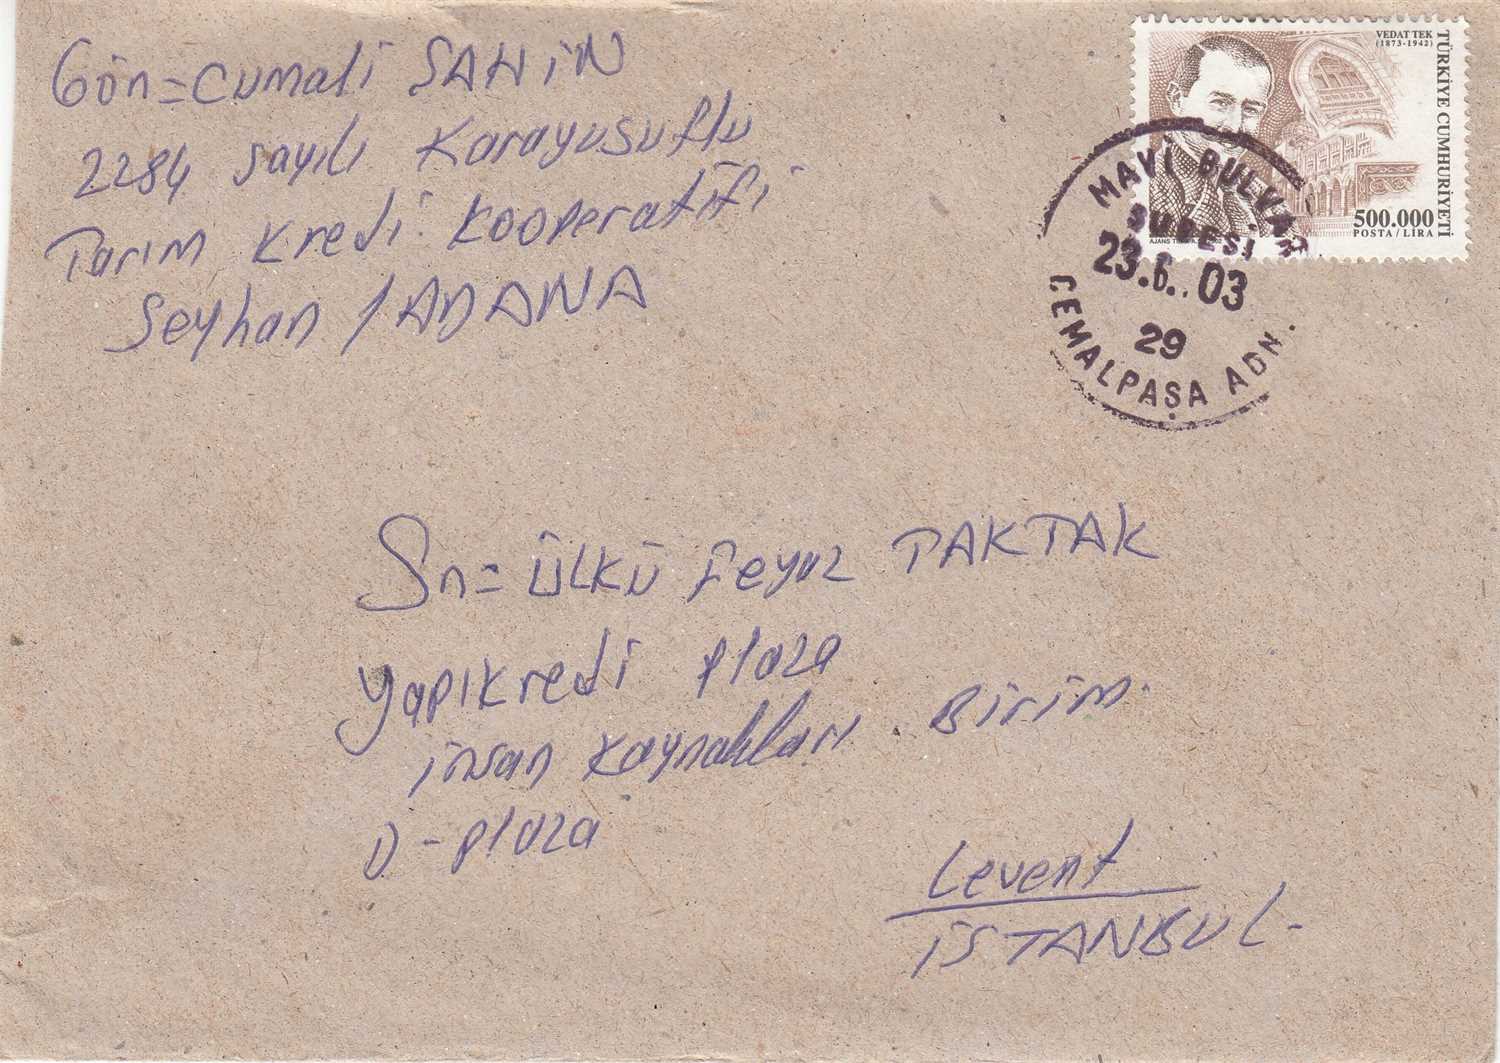 Gön=Cumali SAHiN
2284 sayılı Karayusuflu
Tarım Kredi Kooperatifi
Seyhan / ADANA
VEDAT TEK
(1873-1942)
TÜRKİYE CUMHURİYETİ
500.000
POSTA / LİRA
AJANS
MAVİ BULVAR
ŞUBESİ
23.6..03
29
CEMALPAŞA ADN.
Sn= ÜLKÜ Feyuz TAKTAK
Yapıkredi Plaza
insan kaynakları Birim.
D-Plaza
Levent
iSTANBUL-